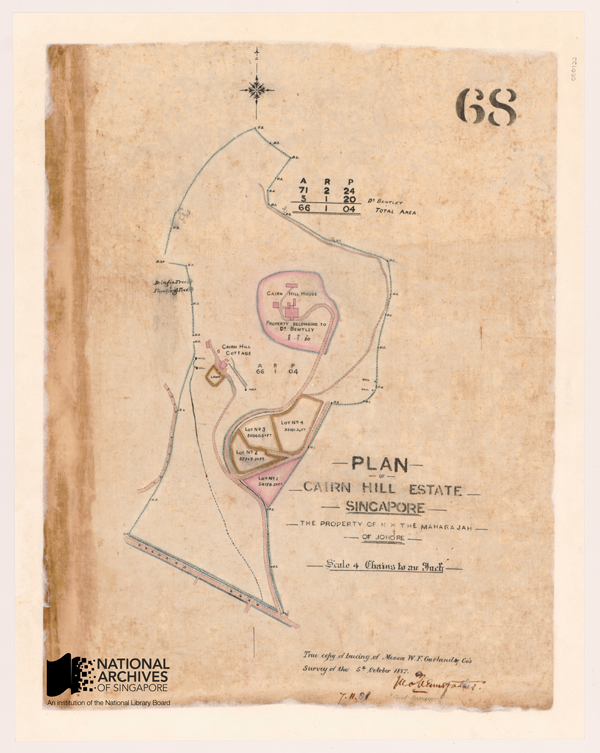 68
A R P
71 2 24
5 1 20 Dr BENTLEY
66 1 04 TOTAL AREA
CAIRN HILL HOUSE
PROPERTY BELONGING TO
Dr BENTLEY
CAIRN HILL
COTTAGE
A R P
66 1 04
LOT No 4
LOT No 3
LOT No 2
LOT No 1
PLAN
OF
CAIRN HILL ESTATE
SINGAPORE
THE PROPERTY OF H H THE MAHARAJAH
OF JOHORE
Scale 4 Chains to an Inch
True copy of tracing of Messrs W. F. Garland & Co's
Survey of the 5th October 1887.
NATIONAL
ARCHIVES
OF SINGAPORE
An institution of the National Library Board